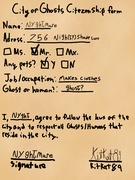 City of Ghosts Citizenship form
Name: NYghtmare
Address: 256
Ms. Mr. Mx.
Any pets? Y N
Job/occupation: makes clothes
Ghost or human? ghost?
I, NYghT, agree to follow the laws of the
city and to respect all Ghosts/Humans that
reside in the city.
NYghtmare KitKat89
Signature KitKat89